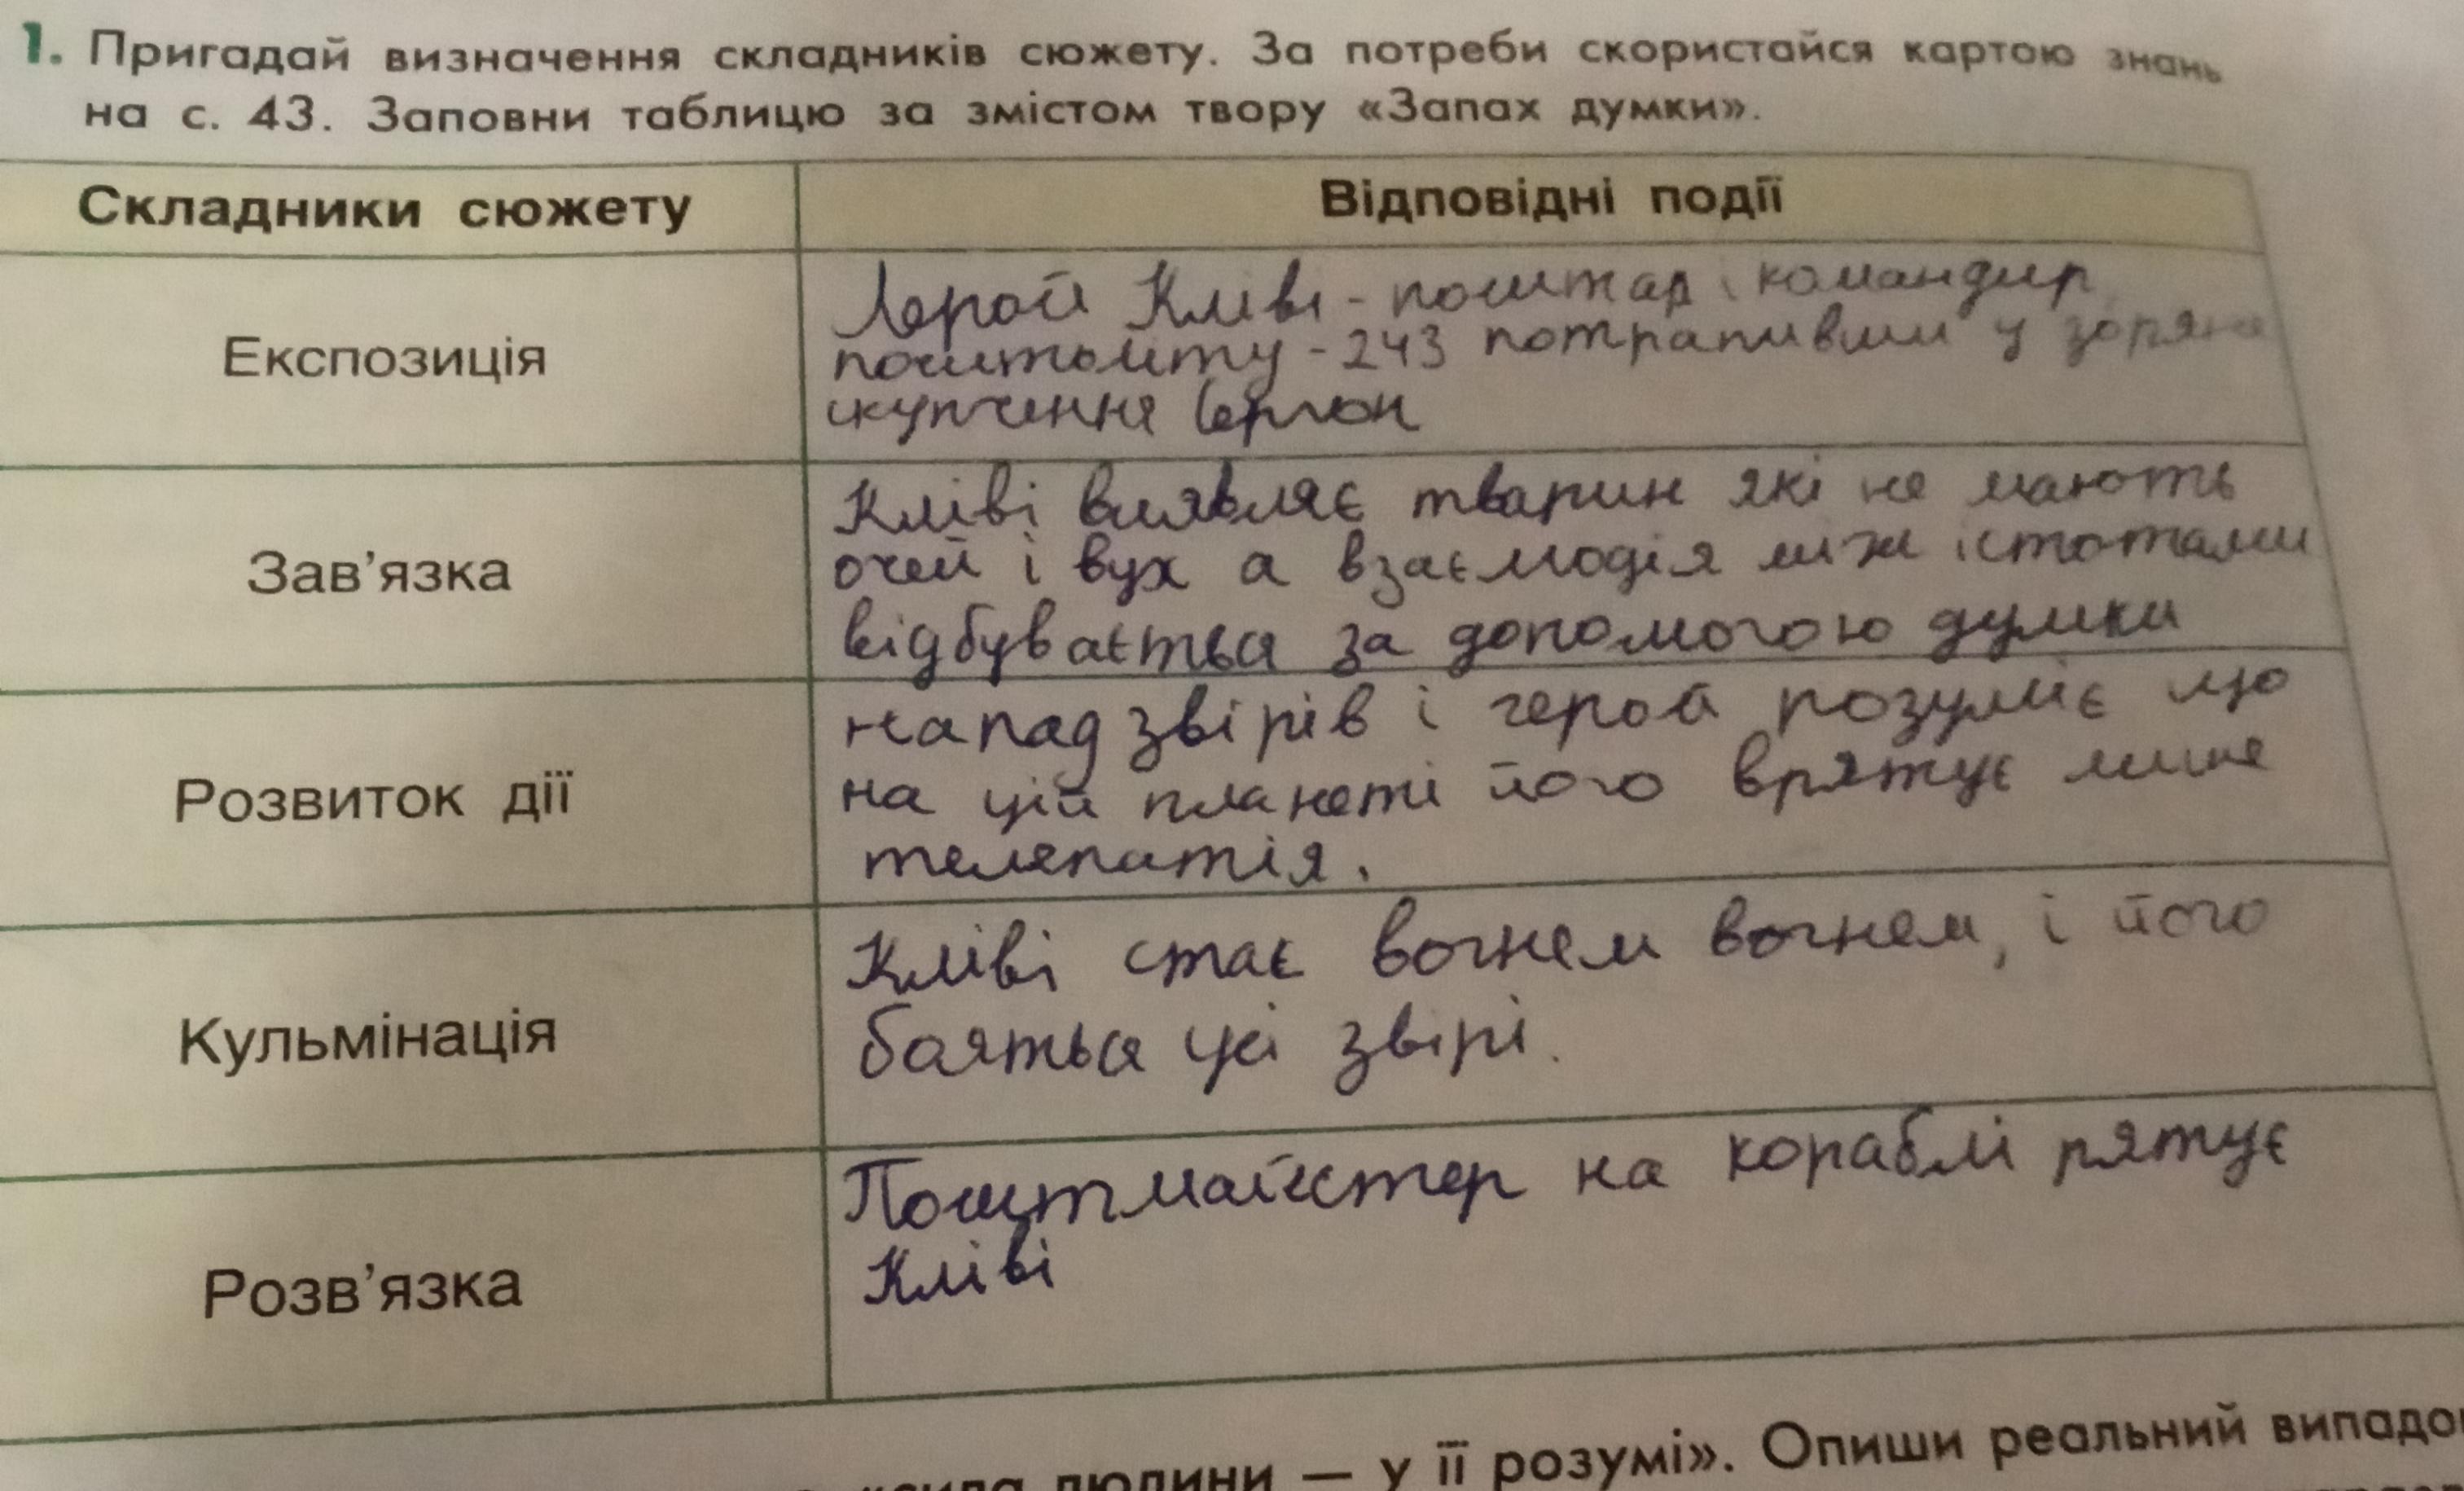 1. Пригадай визначення складників сюжету. За потреби скористайся картою знань
на с. 43. Заповни таблицю за змістом твору «Запах думки».
Складники сюжету
Відповідні події
Експозиція
Герой Кліві - поштар і командир
поштольоту - 243 потрапивши у зоряне
скупчення Сергон
Зав'язка
Кліві виявляє тварин які не мають
очей і вух а взаємодія між істотами
відбувається за допомогою думки
Розвиток дії
напад звірів і герой розуміє що
на цій планеті його врятує лише
телепатія.
Кульмінація
Кліві стає вогнем вогнем, і його
бояться усі звірі.
Розв'язка
Поштмайстер на кораблі рятує
Кліві
людини — у її розумі». Опиши реальний